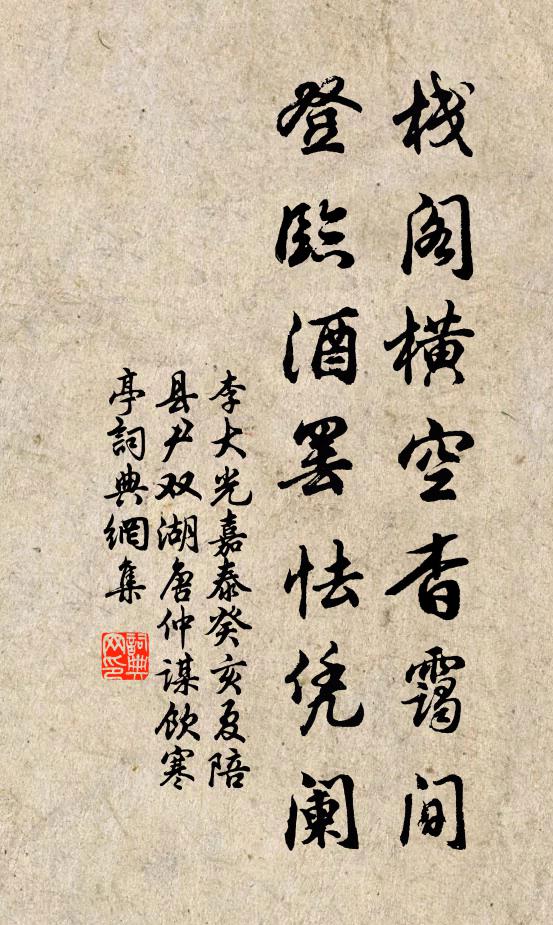 栈阁横空杳霭间
登臨酒罢怯凭阑
李大光嘉泰癸亥夏陪
县尹双湖唐仲谋飲寒
亭詞典網集
詞典
网印